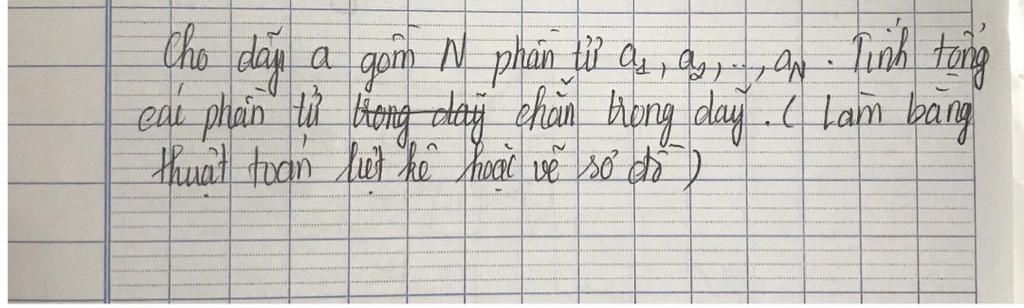 Cho dãy a gồm N phần tử a₁, a₂, ..., aN. Tính tổng
các phần tử trong dãy chẵn trong dãy. ( Làm bằng
thuật toán liệt kê hoặc vẽ sơ đồ )